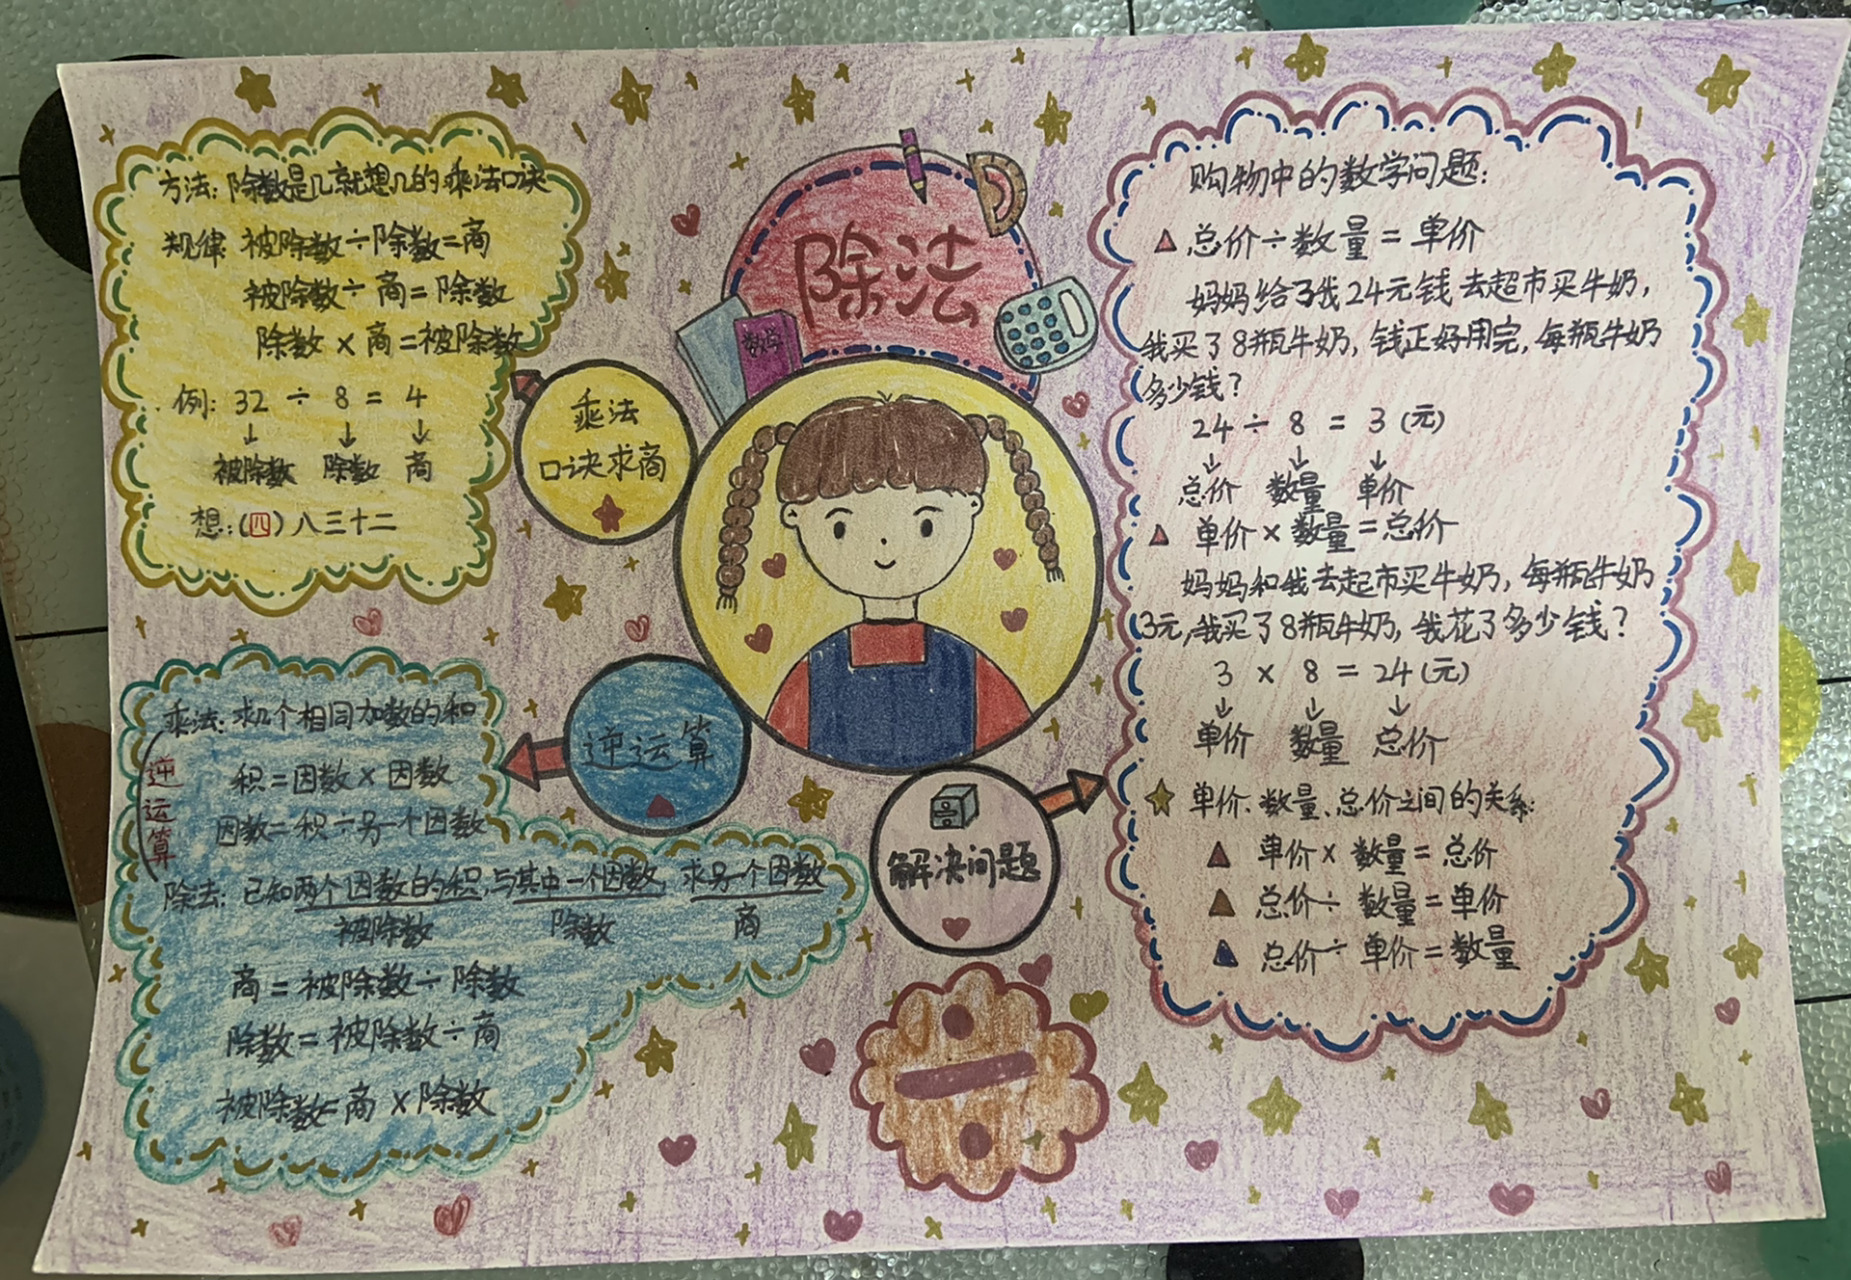 除法
数学
方法:除数是几就想几的乘法口诀
规律:被除数÷除数=商
被除数÷商=除数
除数×商=被除数
例:32÷8=4
↓ ↓ ↓
被除数 除数 商
想:(四)八三十二
乘法
口诀求商
逆运算
乘法:求几个相同加数的和
积=因数×因数
因数=积÷另一个因数
逆运算
除法:已知两个因数的积,与其中一个因数,求另一个因数
被除数 除数 商
商=被除数÷除数
除数=被除数÷商
被除数=商×除数
解决问题
购物中的数学问题:
▲总价÷数量=单价
妈妈给了我24元钱去超市买牛奶,
我买了8瓶牛奶,钱正好用完,每瓶牛奶
多少钱?
24÷8=3(元)
↓ ↓ ↓
总价 数量 单价
▲单价×数量=总价
妈妈和我去超市买牛奶,每瓶牛奶
3元,我买了8瓶牛奶,我花了多少钱?
3×8=24(元)
↓ ↓ ↓
单价 数量 总价
★单价、数量、总价之间的关系:
▲单价×数量=总价
▲总价÷数量=单价
▲总价÷单价=数量
÷